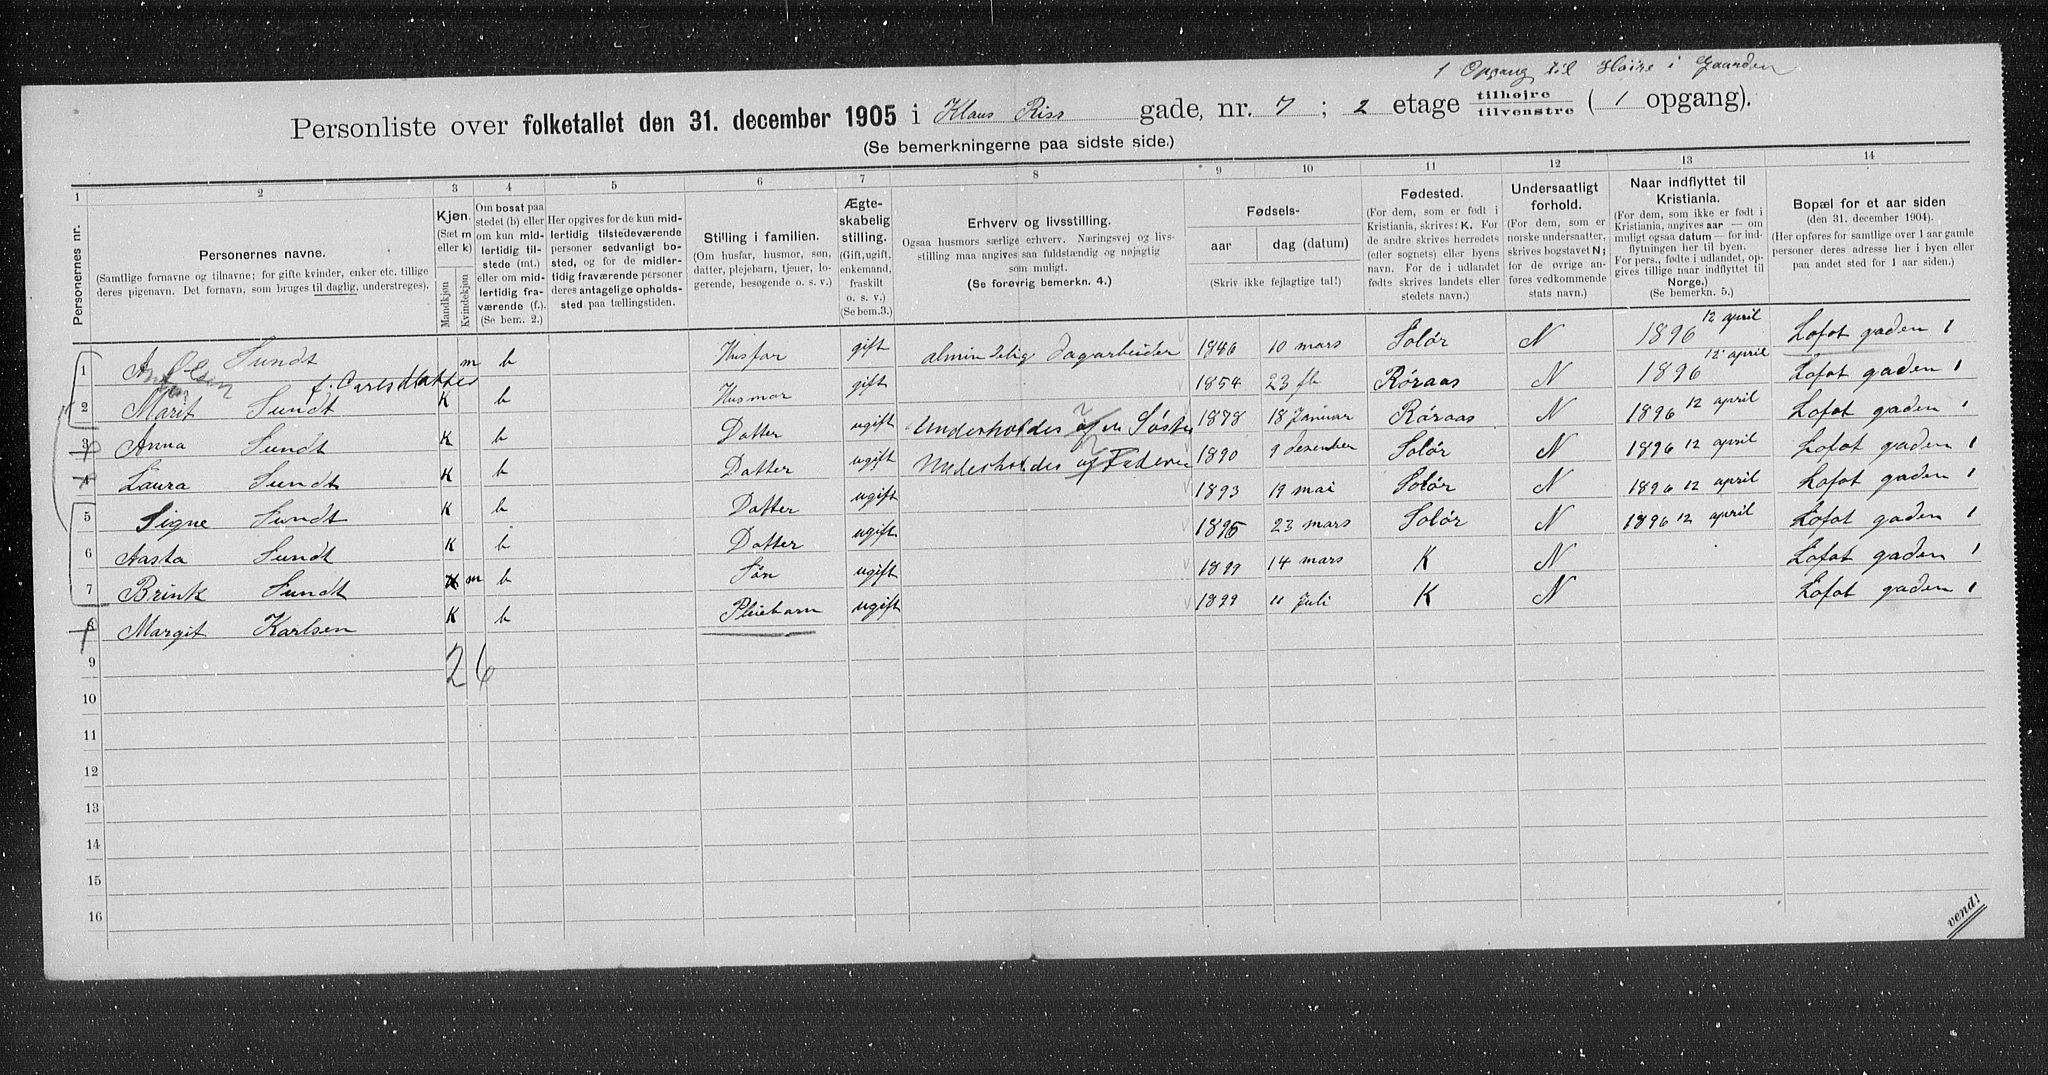 1 Opgang til Høire i Gaarden
Personliste over folketallet den 31. december 1905 i Klaus Riss gade, nr. 7; 2 etage tilhøjre tilvenstre ( 1 opgang).
(Se bemerkningerne paa sidste side.)
1 2 3 4 5 6 7 8 9 10 11 12 13 14
Personernes nr.
Personernes navne.
(Samtlige fornavne og tilnavne; for gifte kvinder, enker etc. tillige
deres pigenavn. Det fornavn, som bruges til daglig, understreges).
Kjøn.
(Sæt m
eller k)
Mandkjøn
Kvindekjøn
Om bosat paa
stedet (b) eller
om kun mid-
lertidig til-
stede (mt.)
eller om mid-
lertidig fra-
værende (f.)
(Se bem. 2.)
Her opgives for de kun mid-
lertidig tilstedeværende
personer sedvanligt bo-
sted, og for de midler-
tidig fraværende personer
deres antagelige opholds-
sted paa tællingstiden.
Stilling i familien.
(Om husfar, husmor, søn,
datter, plejebarn, tjener, lo-
gerende, besøgende o. s. v.)
Ægte-
skabelig
stilling.
(Gift, ugift,
enkemand,
fraskilt
o. s. v.)
(Se bem.3.)
Erhverv og livsstilling.
Ogsaa husmors særlige erhverv. Næringsvej og livs-
stilling maa angives saa fuldstændig og nøjagtig
som muligt.
(Se forøvrig bemerkn. 4.)
Fødsels-
aar
dag (datum)
(Skriv ikke fejlagtige tal!)
Fødested.
(For dem, som er født i
Kristiania, skrives: K. For
de andre skrives herredets
(eller sognets) eller byens
navn. For de i udlandet
fødte skrives landets eller
stedets navn.)
Undersaatligt
forhold.
(For dem, som er
norske undersaatter,
skrives bogstavet N;
for de øvrige an-
føres vedkommende
stats navn.)
Naar indflyttet til
Kristiania.
(For dem, som ikke er født i
Kristiania, angives aar — om
muligt ogsaa datum — for ind-
flytningen her til byen.
For pers., fødte i udlandet, op-
gives tillige naar indflyttet til
Norge.)
(Se bemerkn. 5.)
Bopæl for et aar siden
(den 31. december 1904).
(Her opføres for samtlige over 1 aar gamle
personer deres adresse her i byen eller
paa andet sted for 1 aar siden.)
1 Sundt m b Husfar gift almindelig Dagarbeider 1846 10 mars Solør N 1896 12 april Lofot gaden 1
Olsen
2 Marit Sundt K b Husmor gift 1854 23 fb Røraas N 1896 12 april Lofot gaden 1
3 Anna Sundt K b Datter ugift Underholdes af en Søster 1878 18 Januar Røraas N 1896 12 april Lofot gaden 1
4 Laura Sundt K b Datter ugift Underholdes af Faderen 1890 9 desember Solør N 1896 12 april Lofot gaden 1
5 Signe Sundt K b Datter ugift 1893 19 mai Solør N 1896 12 april Lofot gaden 1
6 Aasta Sundt K b Datter ugift 1895 23 mars Solør N 1896 12 april Lofot gaden 1
7 Brink Sundt m b Søn ugift 1899 14 mars K N Lofot gaden 1
8 Margit Karlsen K b Pleiebarn ugift 1899 11 Juli K N Lofot gaden 1
9
2 6
10
11
12
13
14
15
16
vend!